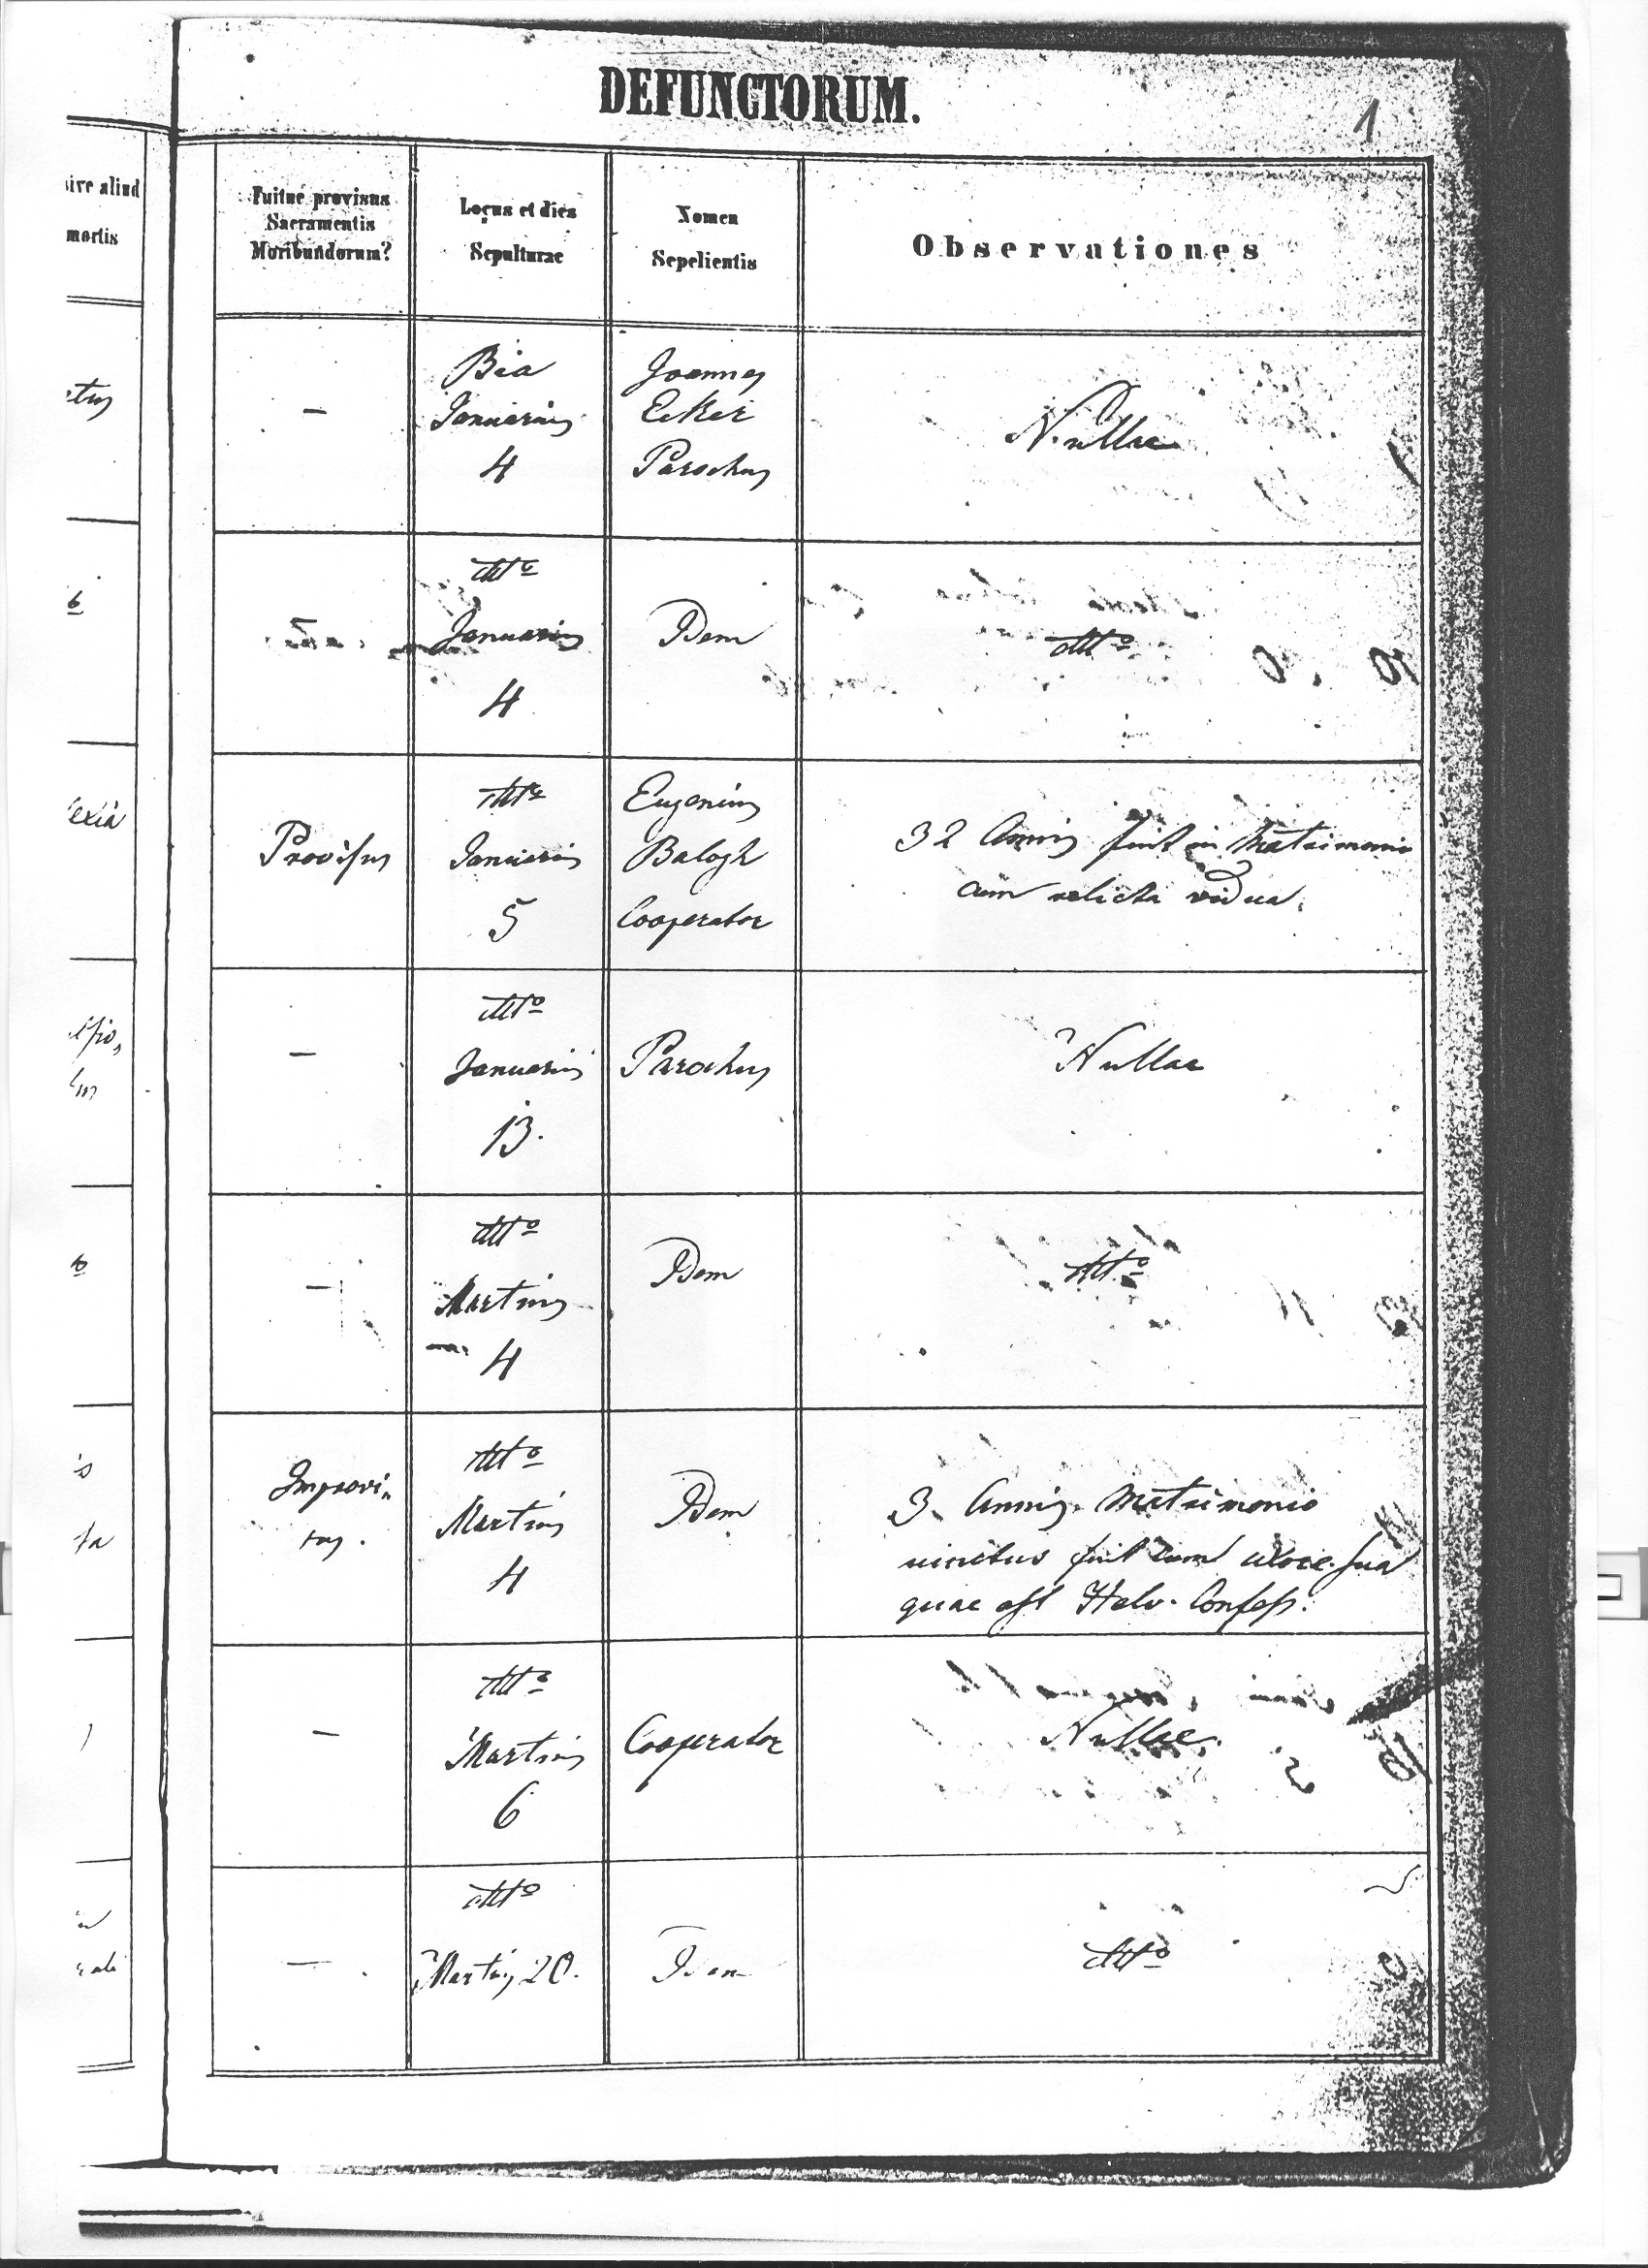 DEFUNCTORUM.
1
Fuitne provisus
Sacramentis
Moribundorum?
Locus et dies
Sepulturae
Nomen
Sepelientis
Observationes
sive aliud
mortis
—
Bia
Januarius
4
Joannes
Ecker
Parochus
Nullae
dtto
Januarius
4
Idem
dtto
exia
Provisus
dtto
Januarius
5
Eugenius
Balogh
Cooperator
32 Annis fuit in Matrimonio
cum relicta vidua.
—
dtto
Januarius
13.
Parochus
Nullae
—
dtto
Martius
4
Idem
dtto
Improvi„
sus.
dtto
Martius
4
Idem
3 Annis Matrimonio
iunctus fuit cum uxore sua
quae est Helv. Confess.
—
dtto
Martius
6
Cooperator
Nullae.
—
dtto
Martius 20.
Idem
dtto